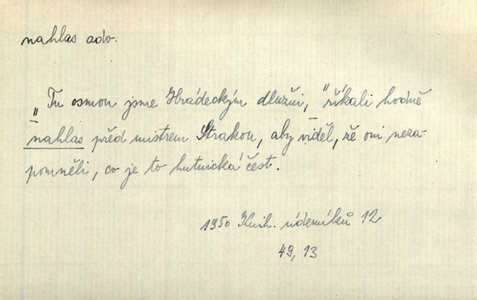 nahlas adv.
„Tu osmou jsme Hrádeckým dlužni," říkali hodně
nahlas před mistrem Strakou, aby viděl, že oni neza-
pomněli, co je to hutnická čest.
1950 Knih. úderníků 12
49, 13